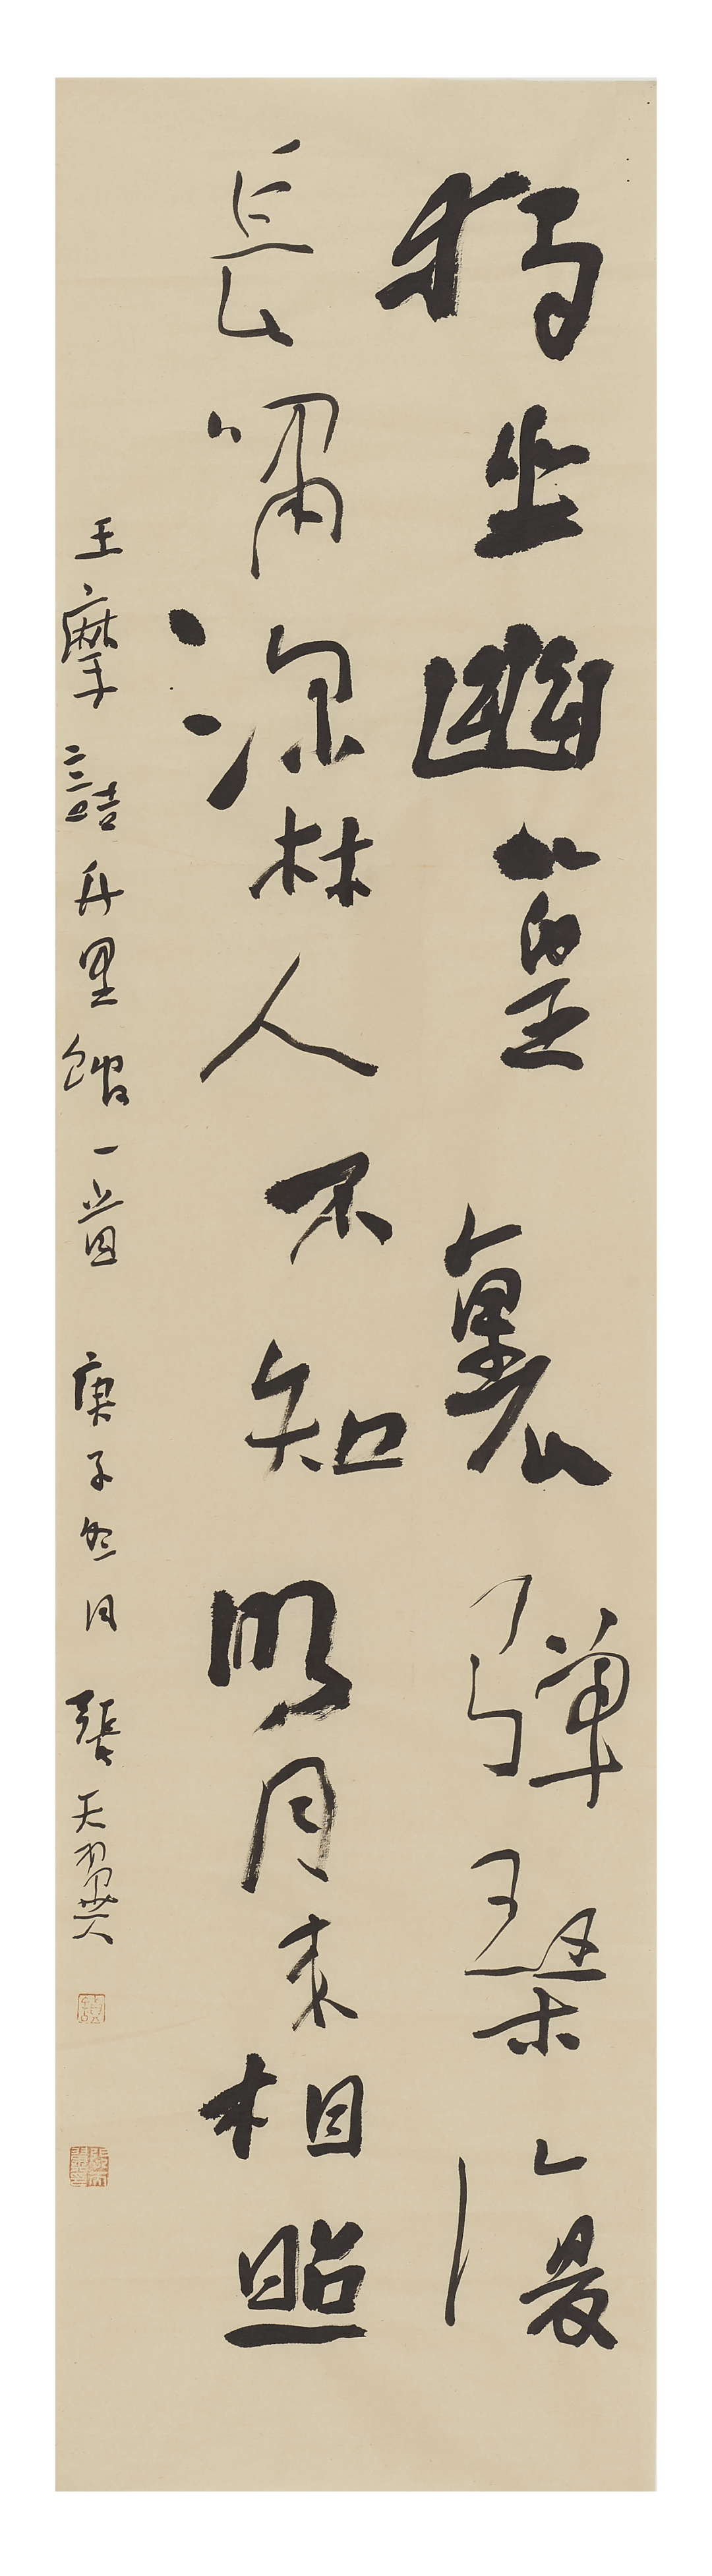 獨坐幽篁裏彈琴復
長嘯深林人不知明月來相照
王摩詰竹里館一首 庚子冬月 張天翼